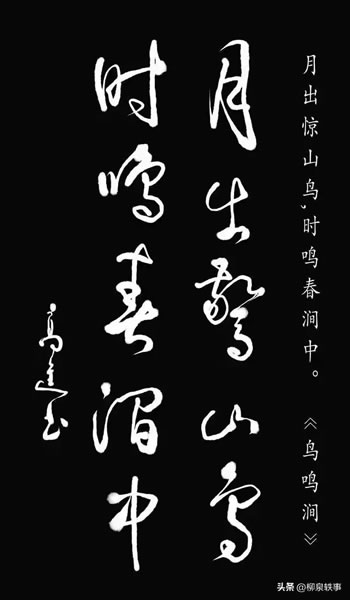 月出惊山鸟,时鸣春涧中。 《鸟鸣涧》
月出驚山鸟
时鸣春涧中
高 书
头条 @柳泉轶事